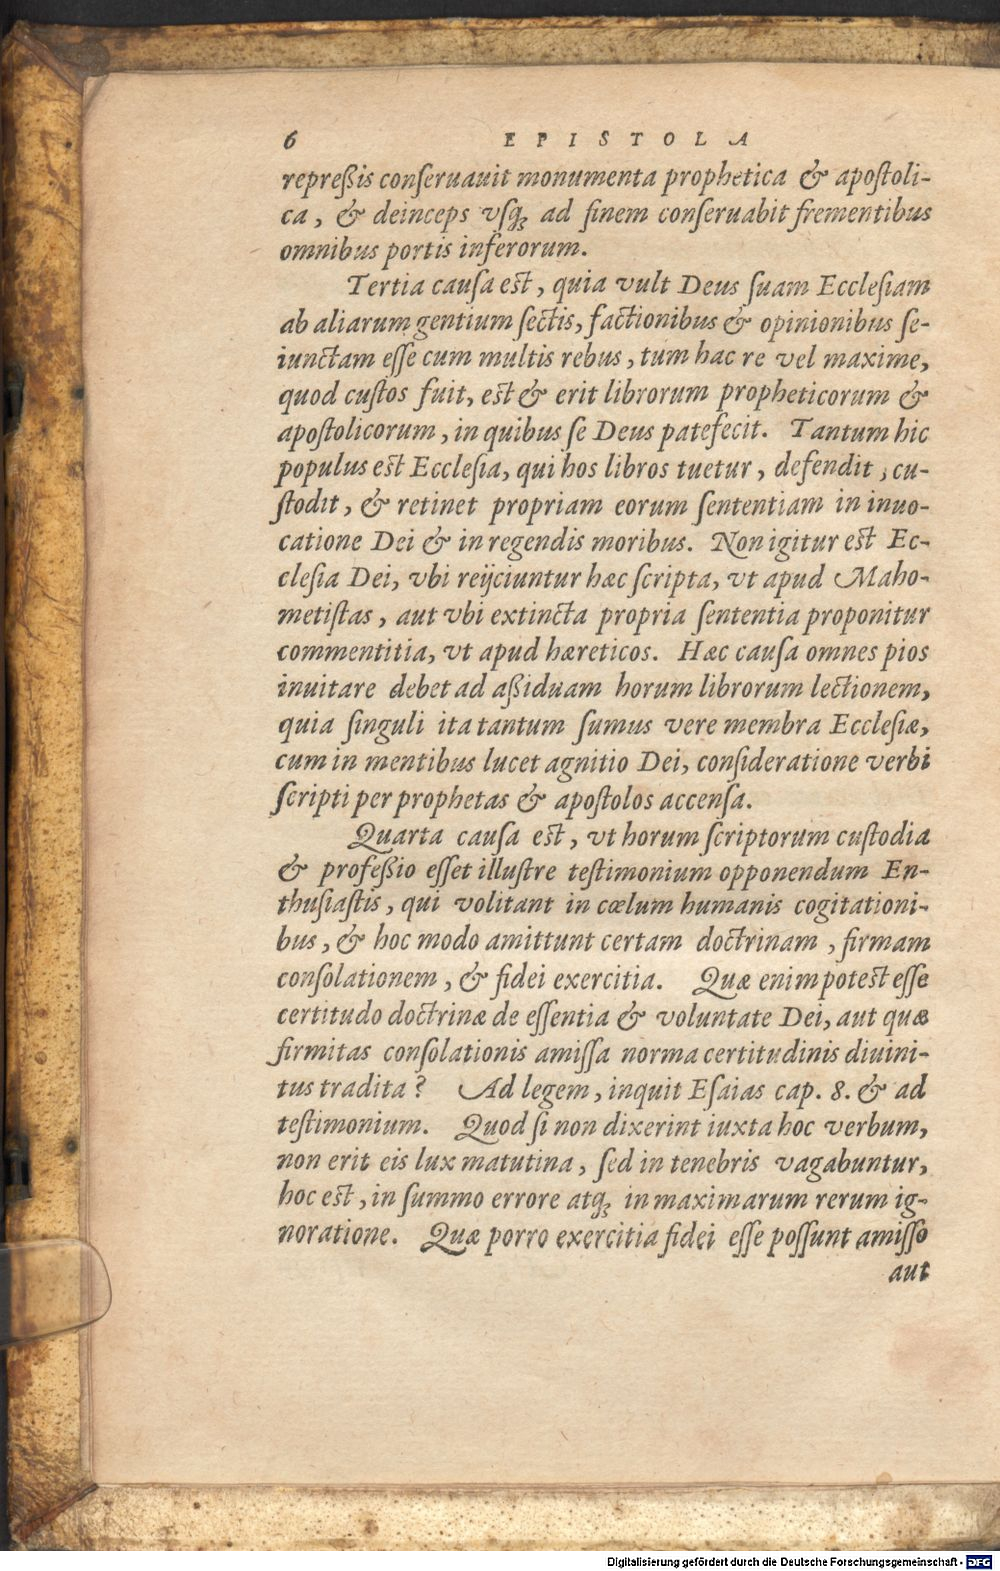 6 EPISTOLA
repreßis conſeruauit monumenta prophetica & apoſtoli-
ca, & deinceps vſq; ad finem conſeruabit frementibus
omnibus portis inferorum.
Tertia cauſa eſt, quia vult Deus ſuam Eccleſiam
ab aliarum gentium ſectis, factionibus & opinionibus ſe-
iunctam eſſe cum multis rebus, tum hac re vel maxime,
quod cuſtos fuit, eſt & erit librorum propheticorum &
apoſtolicorum, in quibus ſe Deus patefecit. Tantum hic
populus eſt Eccleſia, qui hos libros tuetur, defendit, cu-
ſtodit, & retinet propriam eorum ſententiam in inuo-
catione Dei & in regendis moribus. Non igitur eſt Ec-
cleſia Dei, vbi reijciuntur hæc ſcripta, vt apud Maho-
metiſtas, aut vbi extincta propria ſententia proponitur
commentitia, vt apud hæreticos. Hæc cauſa omnes pios
inuitare debet ad aßiduam horum librorum lectionem,
quia ſinguli ita tantum ſumus vere membra Eccleſiæ,
cum in mentibus lucet agnitio Dei, conſideratione verbi
ſcripti per prophetas & apoſtolos accenſa.
Quarta cauſa eſt, vt horum ſcriptorum cuſtodia
& profeßio eſſet illuſtre teſtimonium opponendum En-
thuſiaſtis, qui volitant in cœlum humanis cogitationi-
bus, & hoc modo amittunt certam doctrinam, firmam
conſolationem, & fidei exercitia. Quæ enim poteſt eſſe
certitudo doctrinæ de eſſentia & voluntate Dei, aut quæ
firmitas conſolationis amiſſa norma certitudinis diuini-
tus tradita? Ad legem, inquit Eſaias cap. 8. & ad
teſtimonium. Quod ſi non dixerint iuxta hoc verbum,
non erit eis lux matutina, ſed in tenebris vagabuntur,
hoc eſt, in ſummo errore atq; in maximarum rerum ig-
noratione. Quæ porro exercitia fidei eſſe poſſunt amiſſo
aut
Digitalisierung gefördert durch die Deutsche Forschungsgemeinschaft - DFG